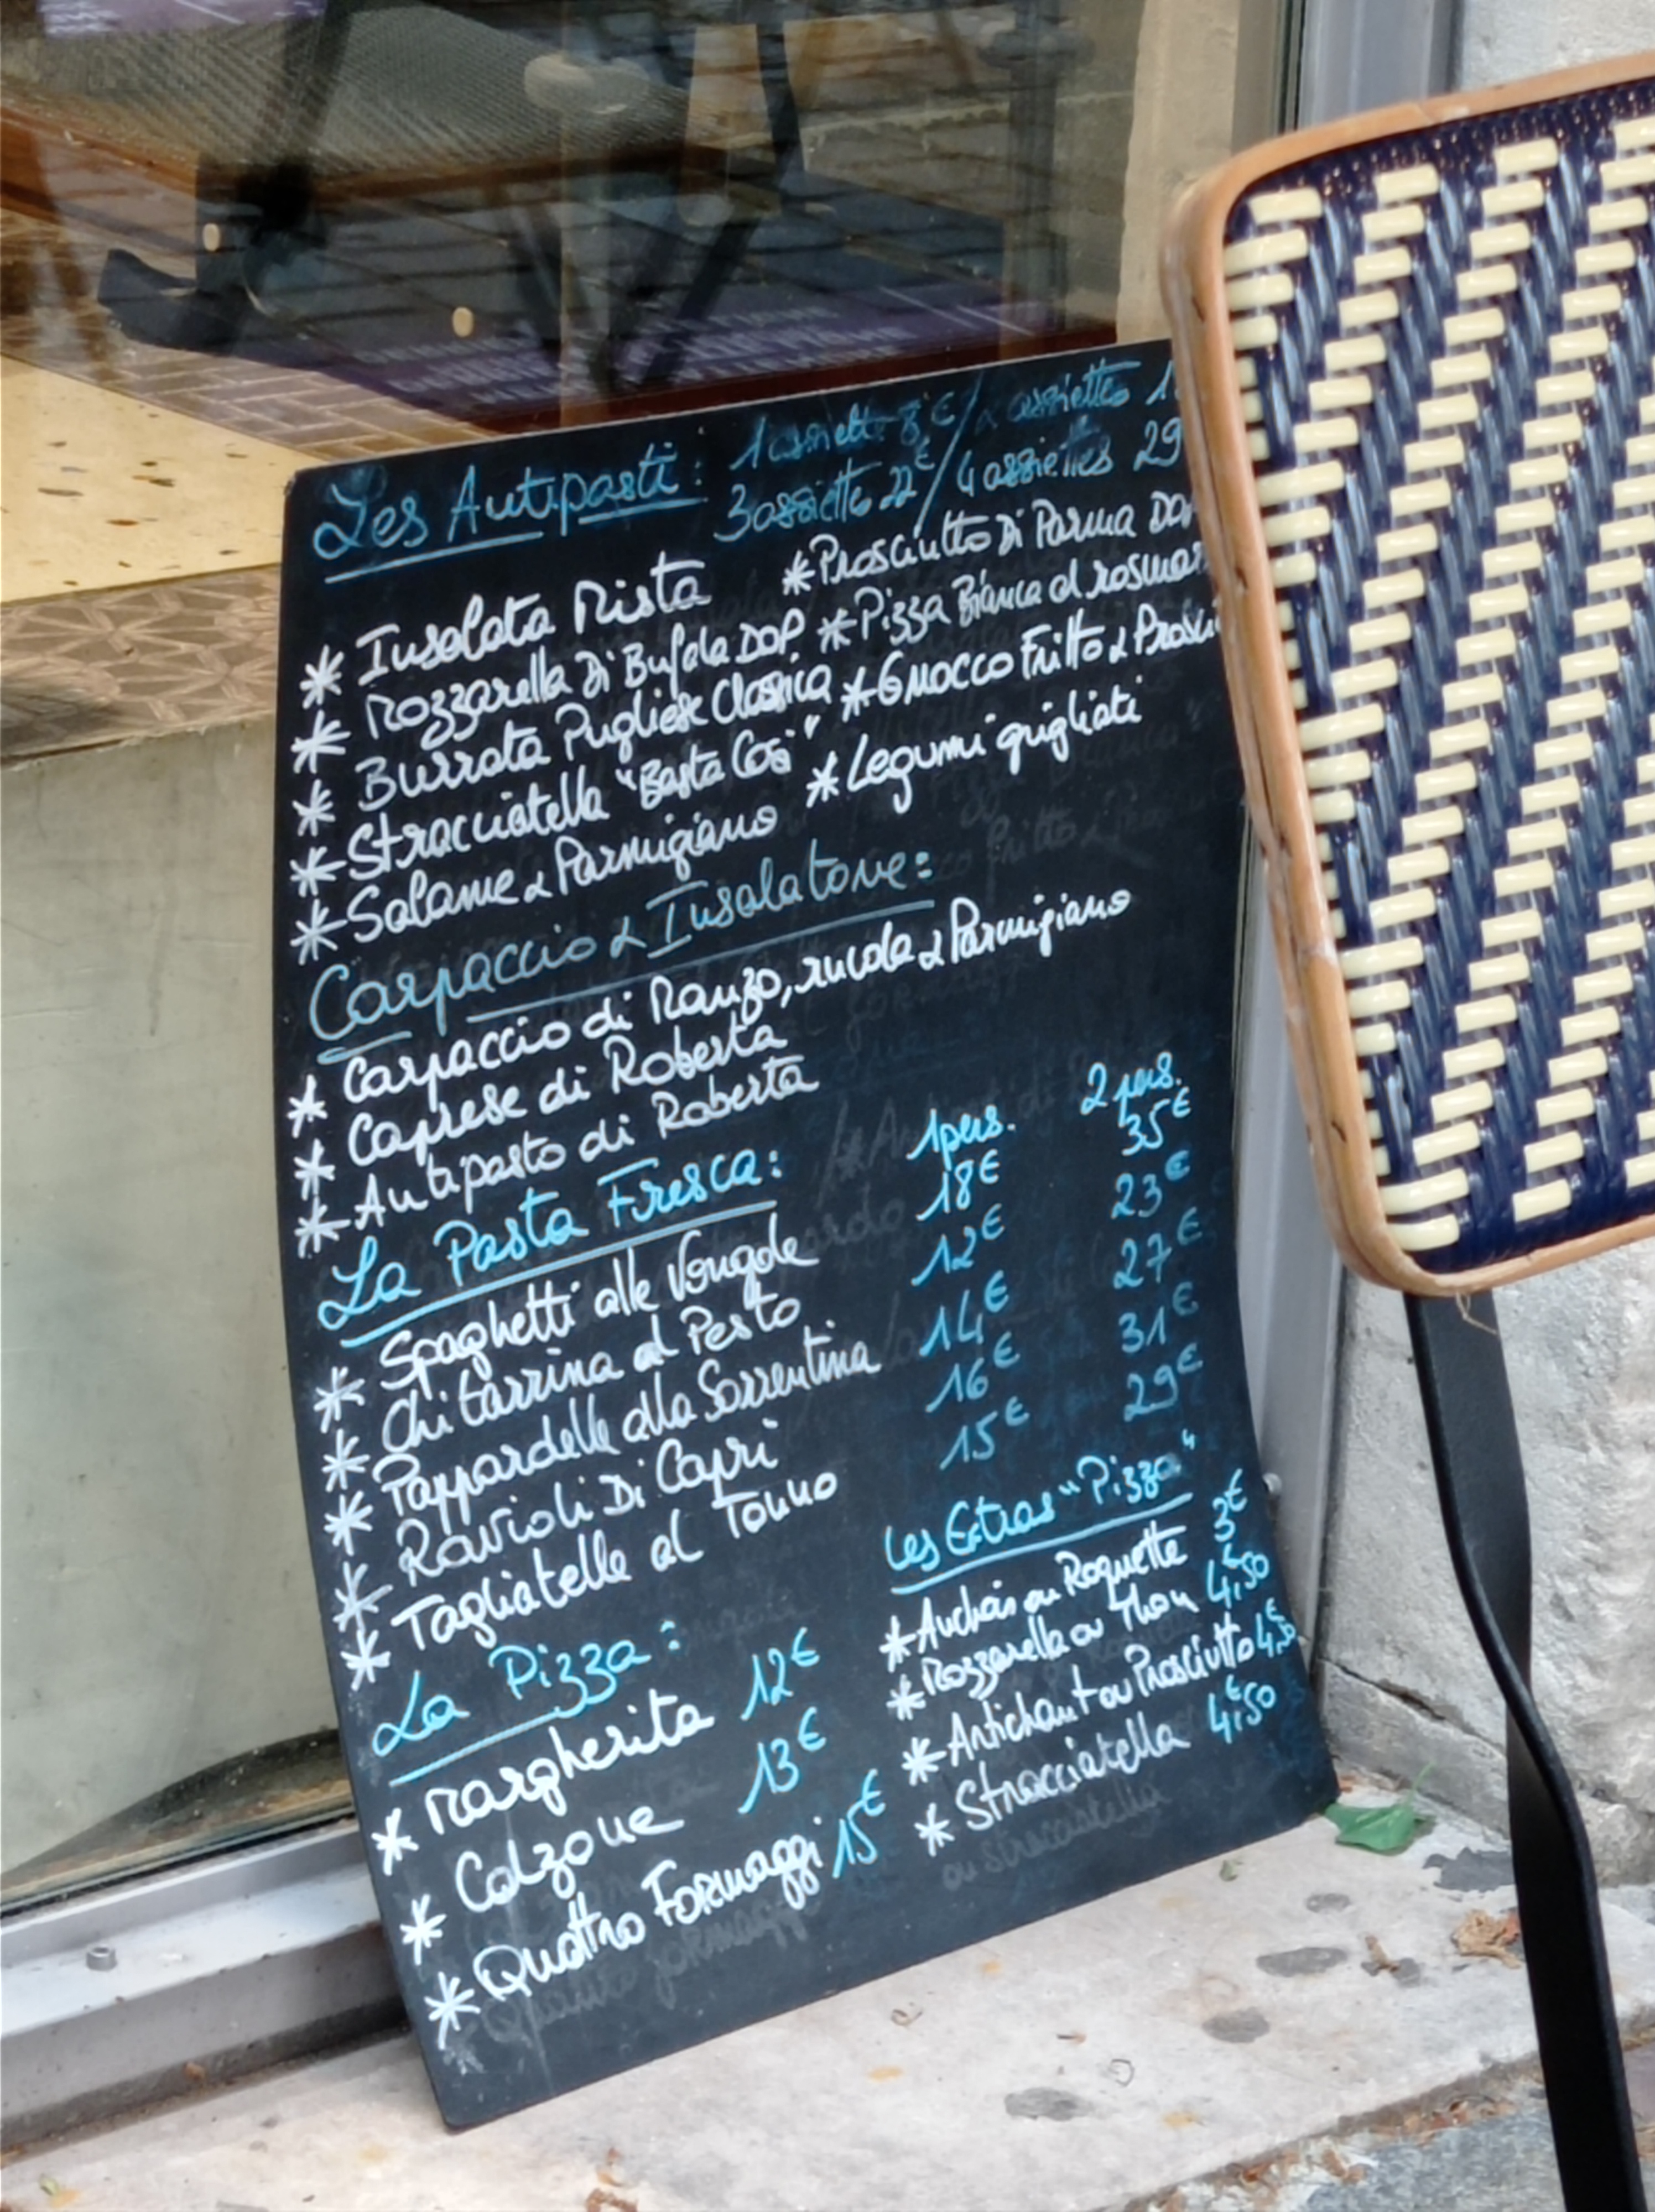 Les Antipasti: 1 assiette 8€ / 2 assiettes
3 assiettes 22€ / 4 assiettes 29
* Insalata Mista * Prosciutto Di Parma
* Mozzarella Di Bufala DOP * Pizza Bianca al
* Burrata Pugliese Classica * Gnocco Fritto &
* Stracciatella "Basta Così" * Legumi grigliati
* Salame & Parmigiano
Carpaccio & Insalatone:
* Carpaccio di Manzo, rucola & Parmigiano
* Caprese di Roberta
* Antipasto di Roberta
La Pasta Fresca: 1 pers. 2 pers.
* Spaghetti alle Vongole 18€ 35€
* Chitarrina al Pesto 12€ 23€
* Pappardelle alla Sorrentina 14€ 27€
* Ravioli Di Capri 16€ 31€
* Tagliatelle al Tonno 15€ 29€
La Pizza:
* Margherita 12€
* Calzone 13€
* Quattro Formaggi 15€
Les Extras "Pizza"
* Anchois ou Roquette 3€
* Mozzarella ou Thon 4€,50
* Artichaut ou Prosciutto 4€,50
* Stracciatella 4€,50